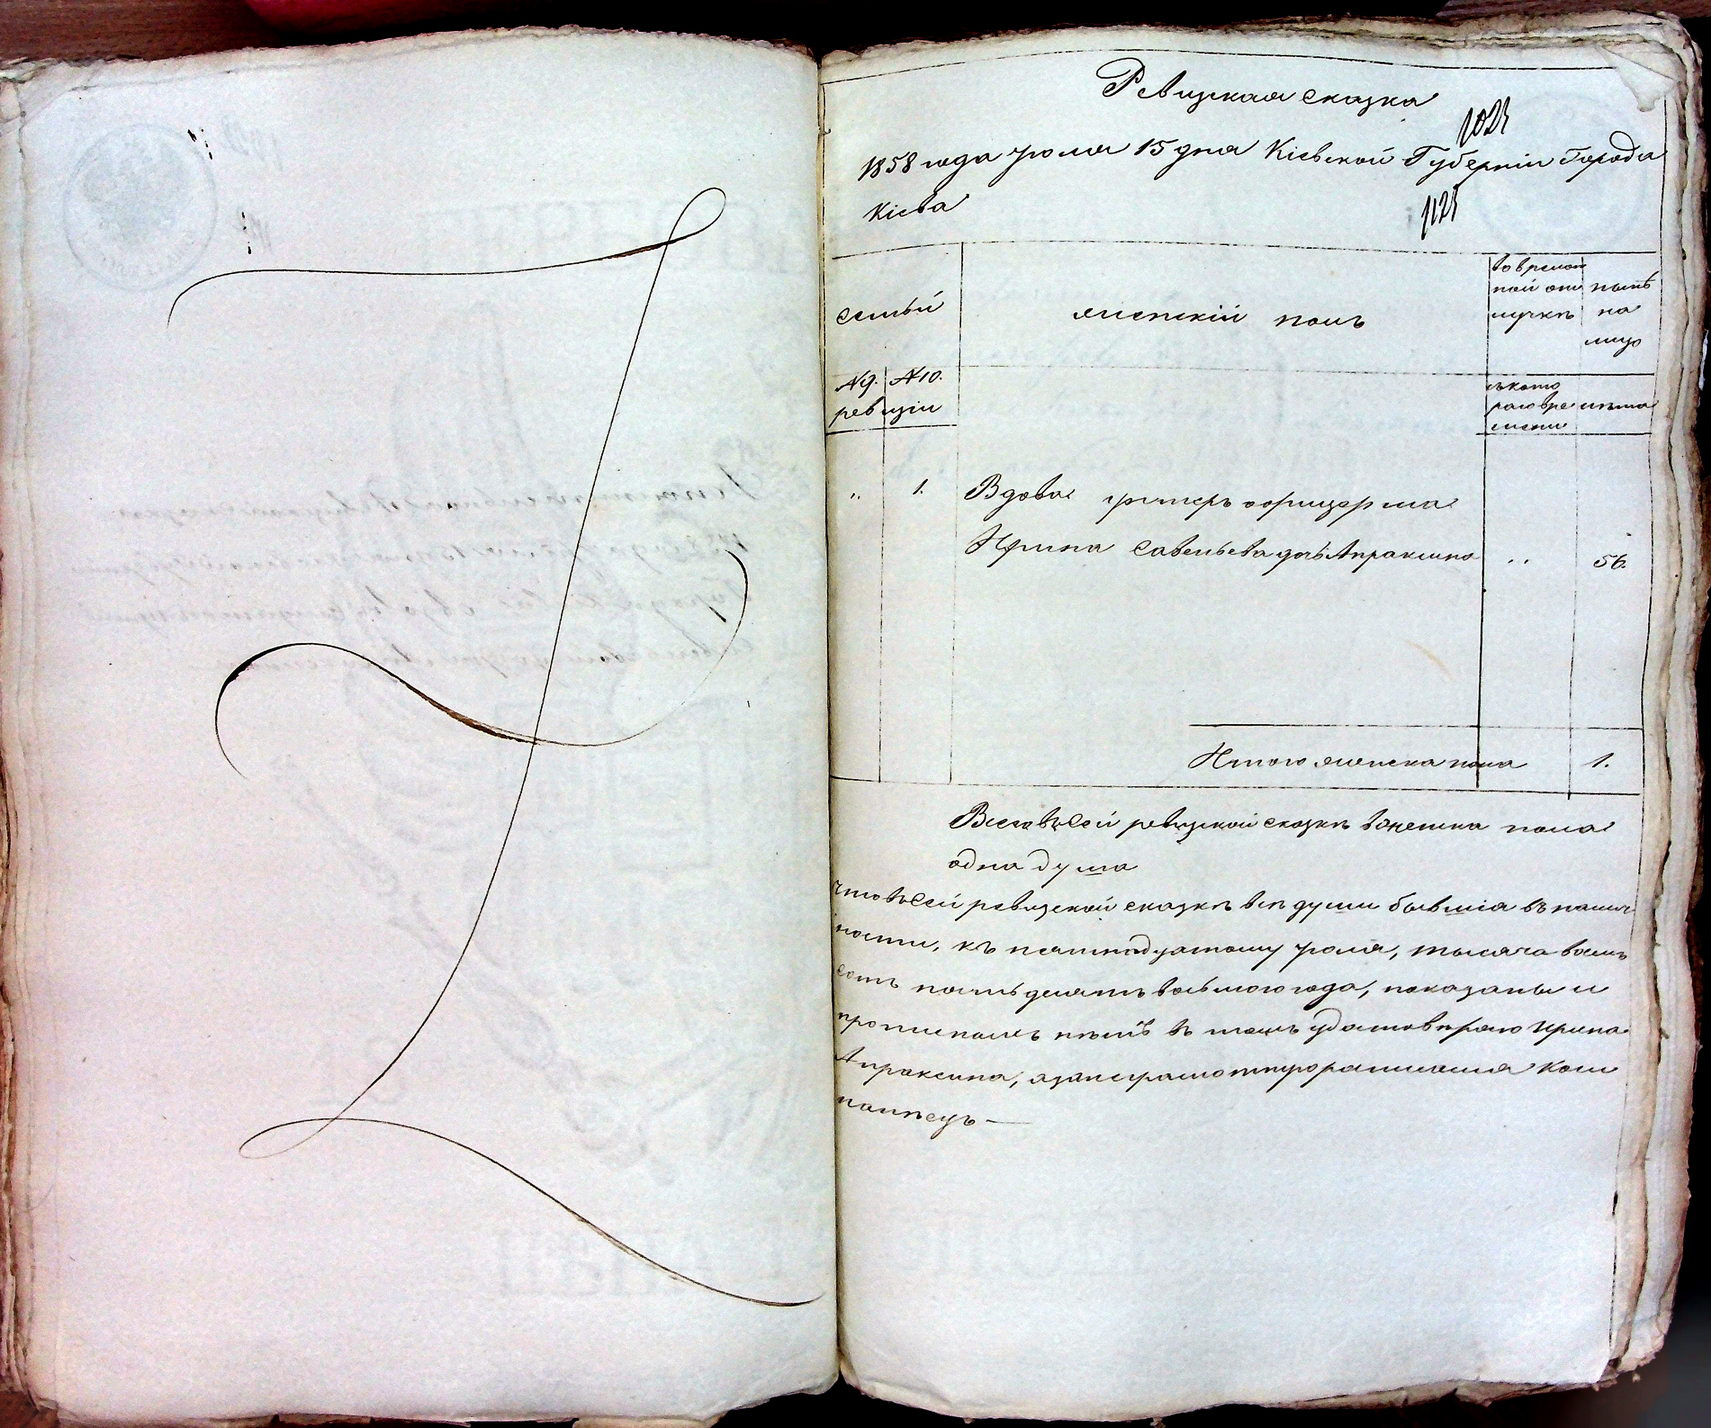 Ревизская сказка
1023
1858 года Юля 15 дня Кіевской Губерніи Города
Кіева
1125
Семьи
женскій полъ
во времен
ной отлучкѣ
нынѣ
на
лицо
№9. №10.
ревизіи
съ кото
раго вре
мени
лѣта
„ 1. Вдова унтеръ офицерша
Ирина Савельева дочь Апраксина „ 56.
Итого женска пола 1.
Всего въ сей ревизской сказкѣ женска пола
одна душа
Что въ сей ревизской сказкѣ всѣ души бывшіа въ налич
ности, къ пятнадцатому Юля, тысяча восемь
сотъ пятьдесятъ восьмого года, показаны и
прописныхъ нѣтъ въ томъ удостовѣряю Ирина
Апраксина, а за неграмотную росписался